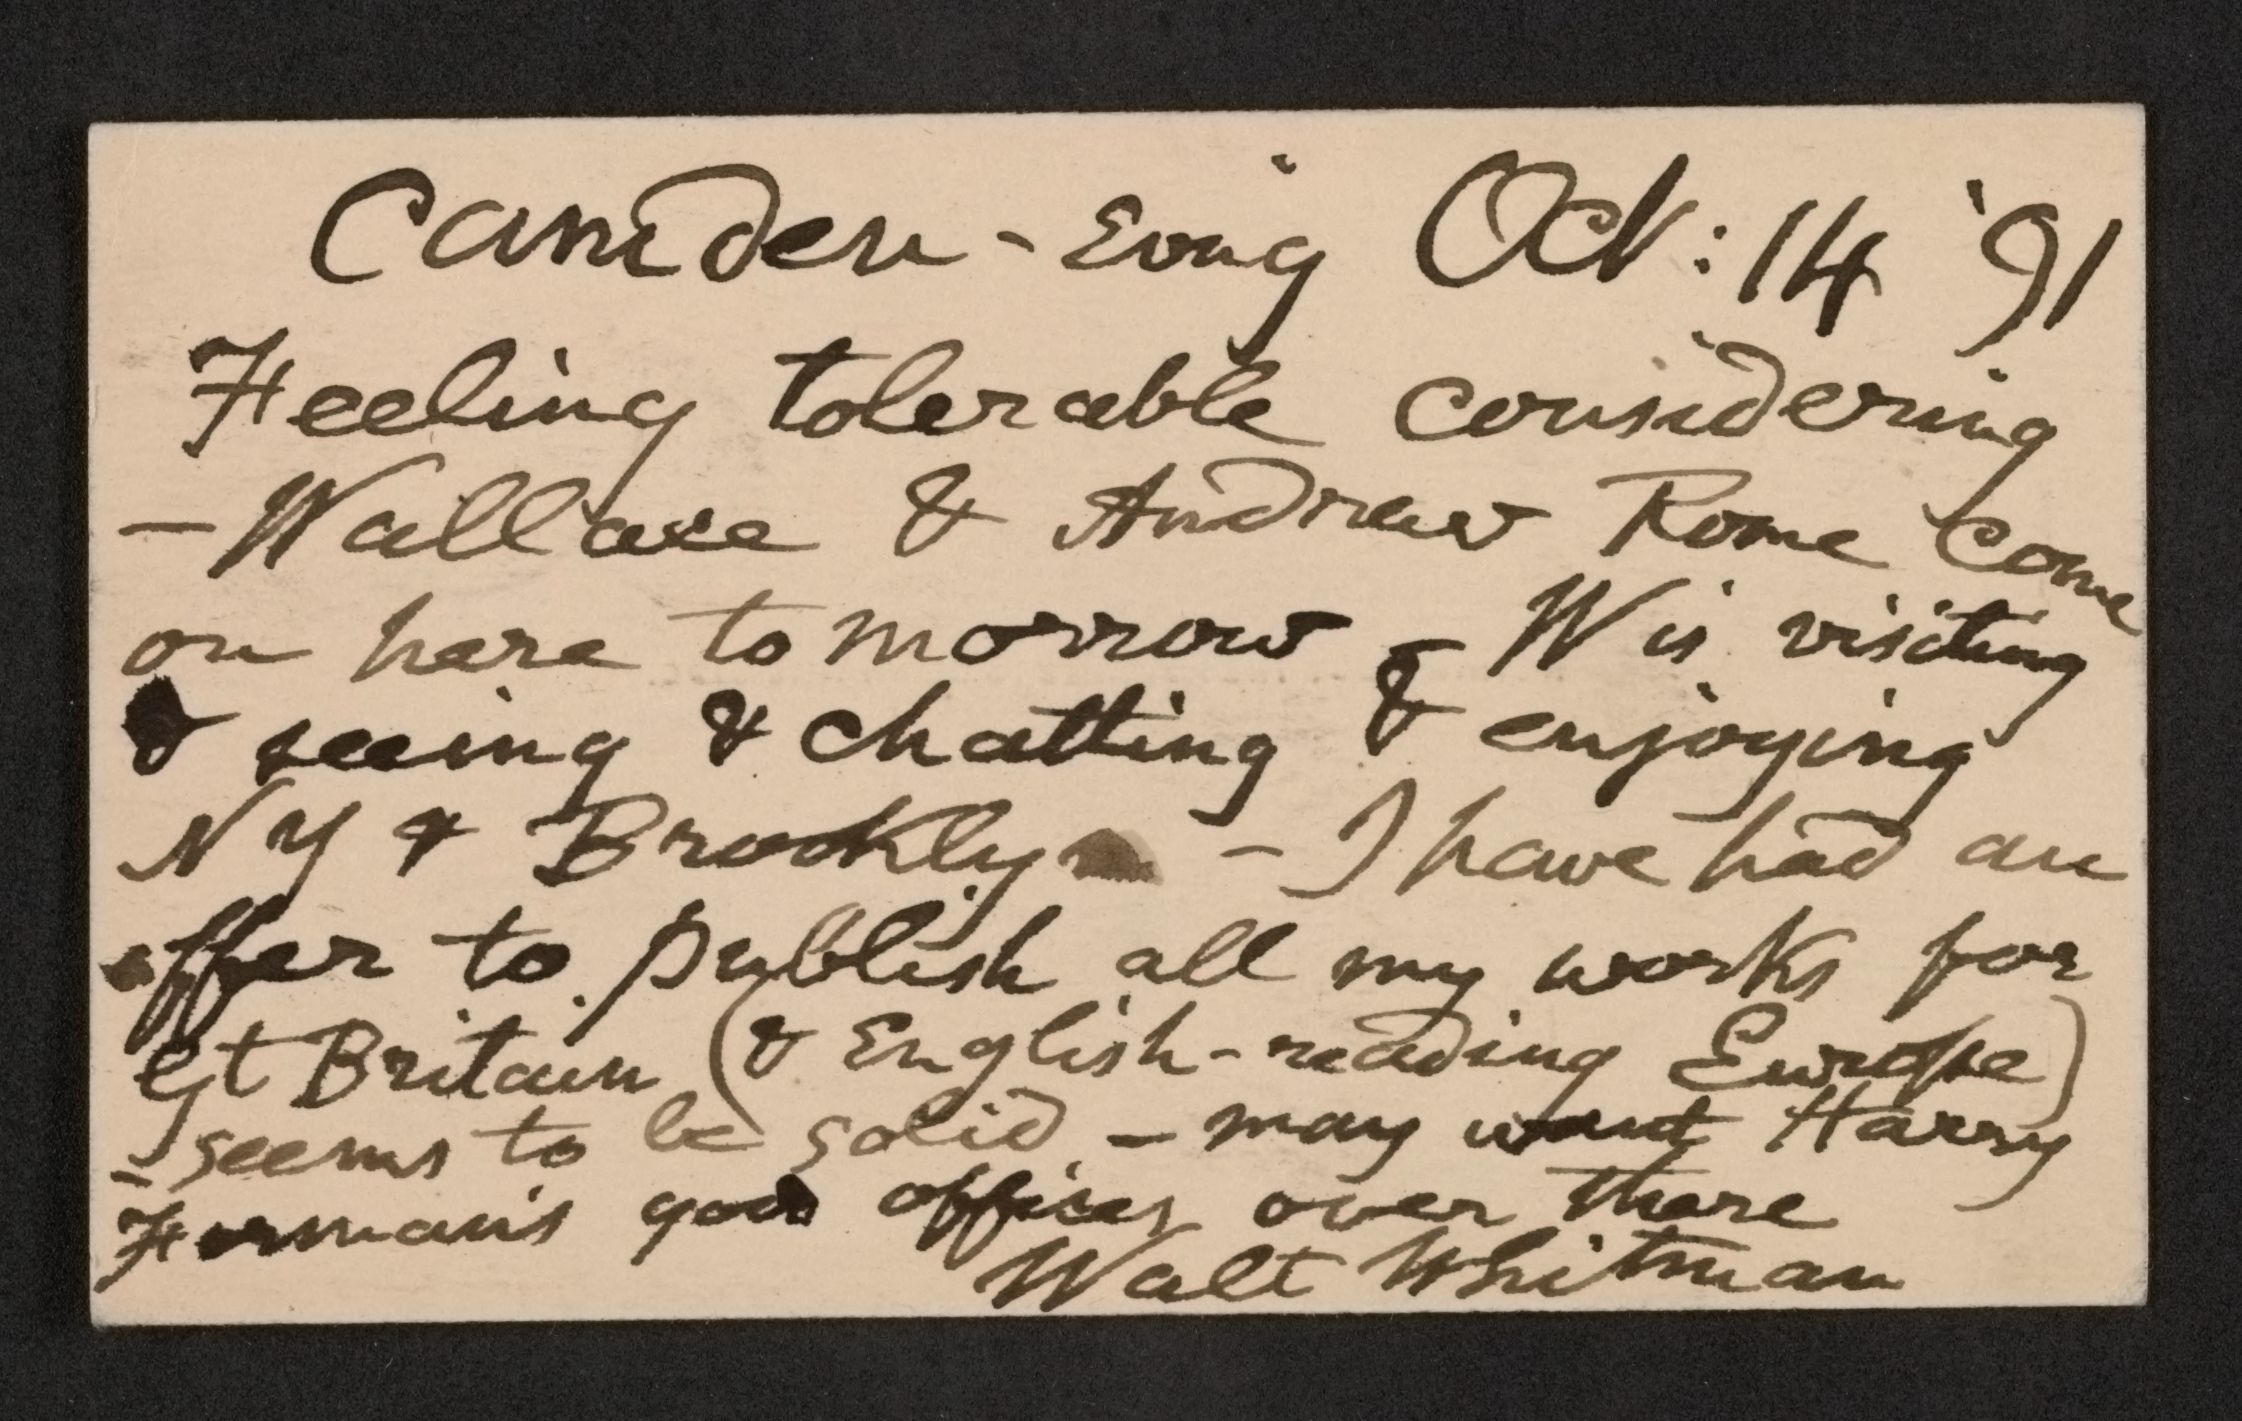 Camden - Evn'g Oct: 14 '91
Feeling tolerable considering
- Wallace & Andrew Rome come
on here tomorrow - W is visiting
& seeing & chatting & enjoying
N Y & Brooklyn - I have had an
offer to publish all my works for
Gt Britain (& English-reading Europe)
- seems to be solid - may want Harry
Forman's good offices over there
Walt Whitman